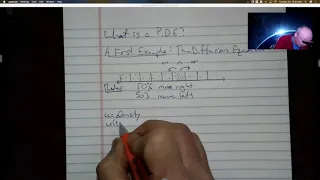 What is a P.D.E?
A First Example: The Diffusion Equation
50% move right
50% move left
u = density
u(t